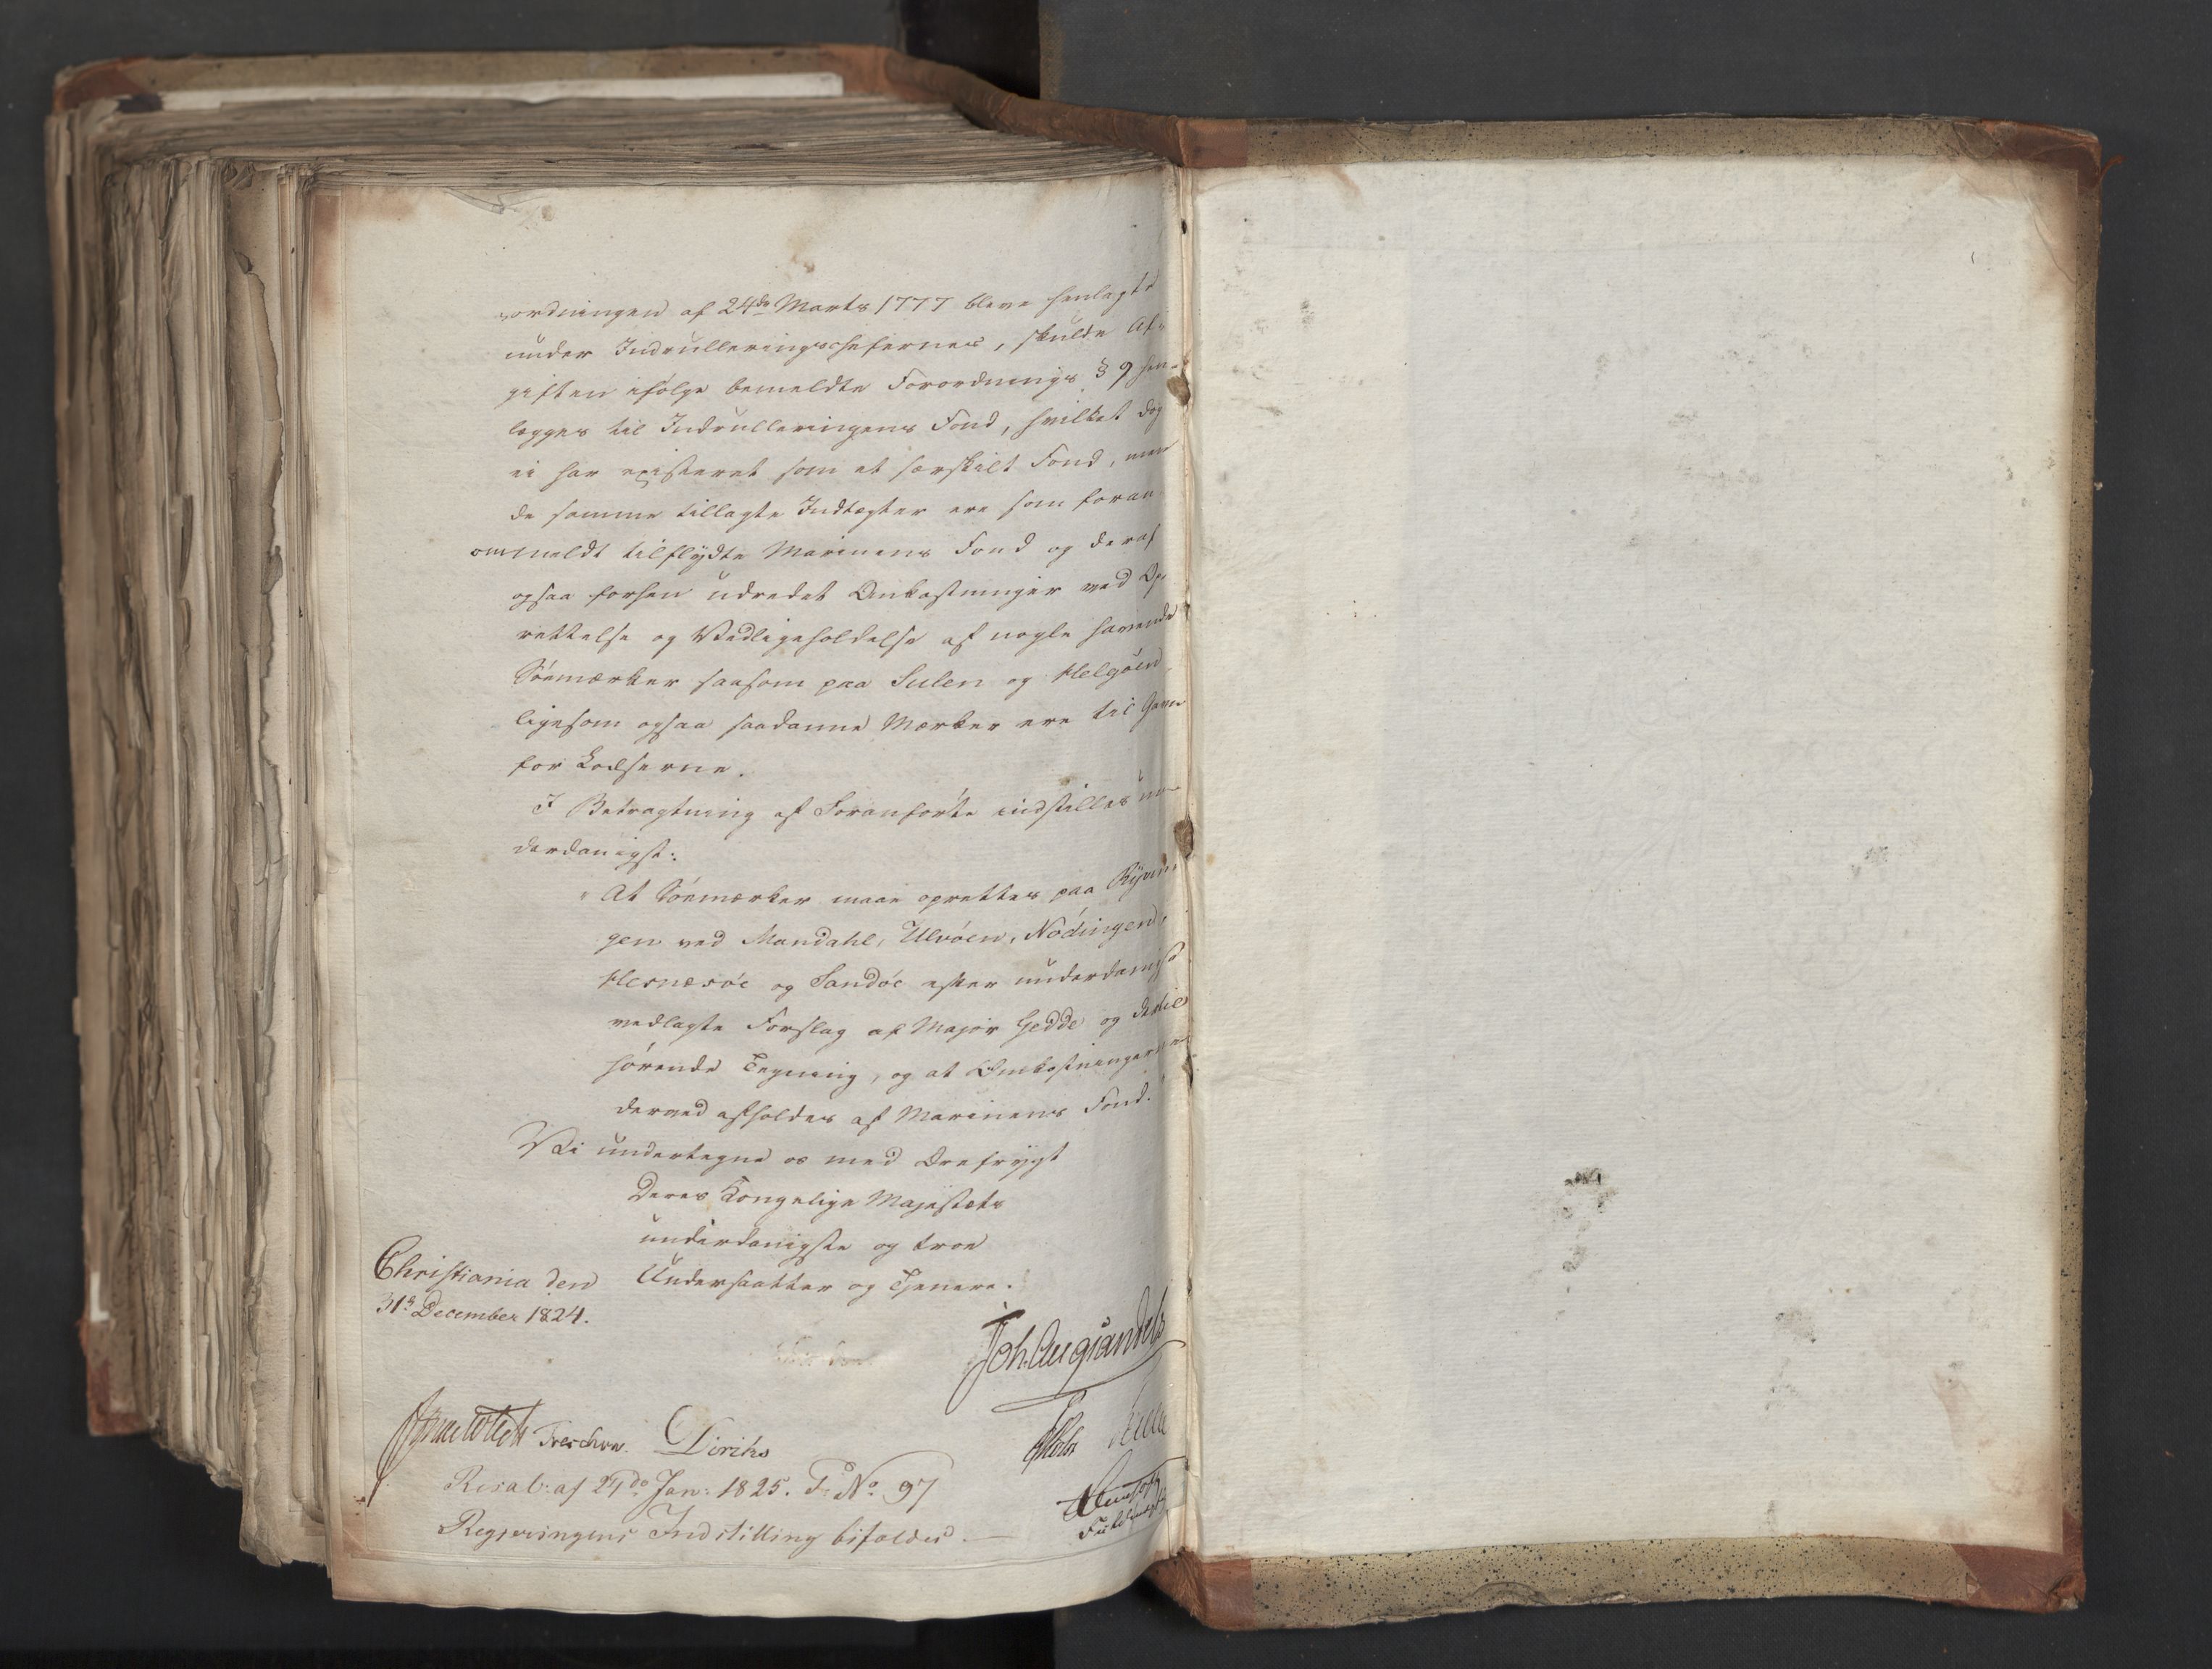 ordningen af 24de Marts 1777 bleve henlagte
under Indrulleringschefernes, skulde Af-
giften ifølge bemeldte Forordnings § 9 hen-
lægges til Indrulleringens Fond, hvilket dog
ei har existeret som et særskilt Fond, men
de samme tillagte Indtægter ere som foran
ommeldt tilflydte Marinens Fond og deraf
ogsaa forhen udredet Omkostninger ved Op-
rettelse og Vedligeholdelse af nogle havende
Sømærker saasom paa Sulen og Helgøen,
ligesom ogsaa saadanne Mærker ere til Gavn
for Lodserne.
I Betragtning af Foranførte indstilles un-
derdanigst:
"At Sømærker maae oprettes paa Ryvin-
gen ved Mandahl, Ulvøen, Nødingen,
Hesnesøe og Sandøe efter underdanigst
vedlagte Forslag af Major Gedde og dertil
hørende Tegning, og at Omkostningerne
derved afholdes af Marinens Fond."
Vi undertegne os med Ærefrygt
Deres Kongelige Majestæts
underdanigste og troe
Christiania den Undersaatter og Tjenere.
31te December 1824.
Joh. Aug Sandels
Treschow. Diriks
Resol: af 27de Jan: 1825. No 97
Regjeringens Indstilling bifaldes.